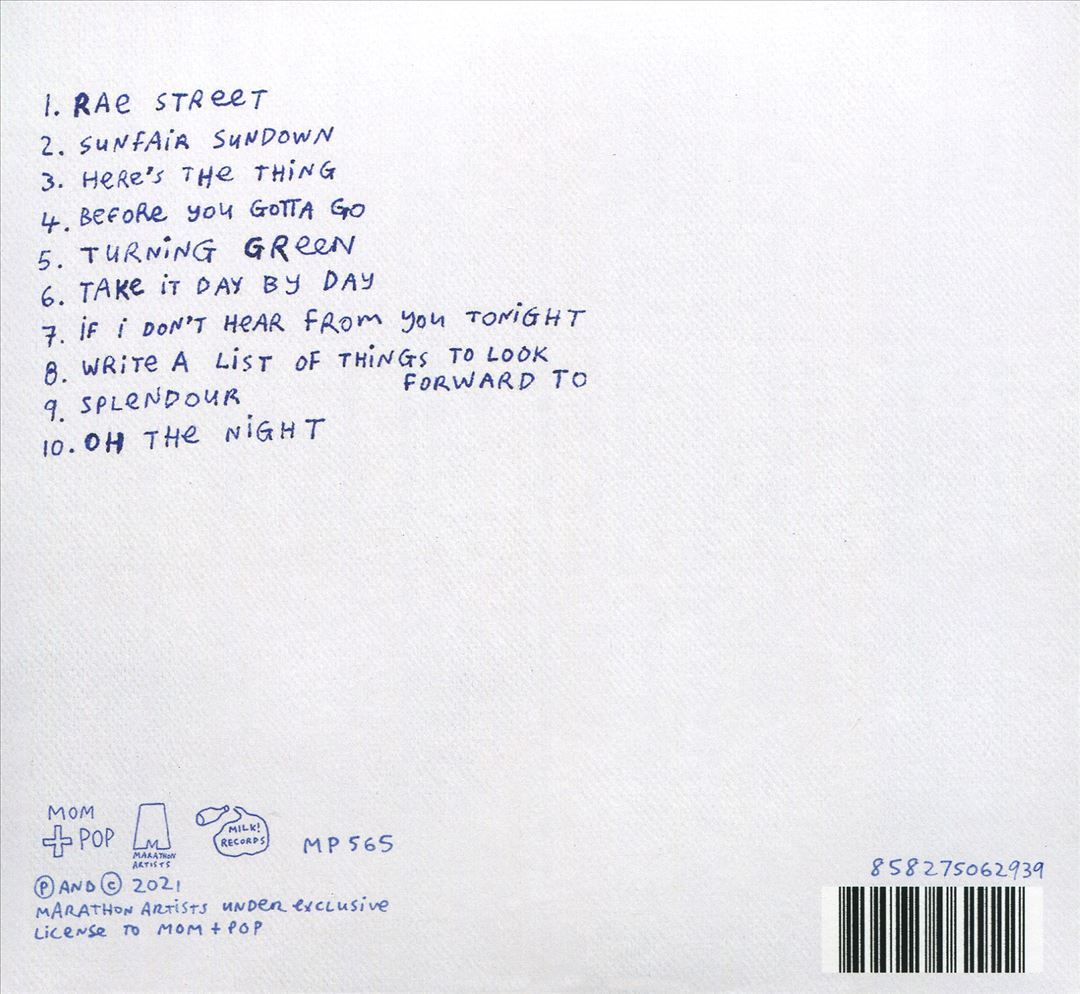 1. RAe STReeT
2. SUNFAiR SUNDOWN
3. HeRe'S THe THiNG
4. BeFoRe you GOTTA GO
5. TURNiNG GReeN
6. TAKe iT DAY BY DAY
7. iF i DON'T HeAR FROm you TONiGHT
8. WRiTe A LiST OF THiNGS TO LOOK
FORWARD TO
9. SPLeNDOUR
10. OH THe NiGHT
MOM
+ POP
M
MARATHON
ARTiSTS
MiLK!
RECORDS
MP 565
Ⓟ AND © 2021
MARATHON ARTiSTS UNDeR exCLUSiVe
LiCeNSe TO MOM + POP
858275062939